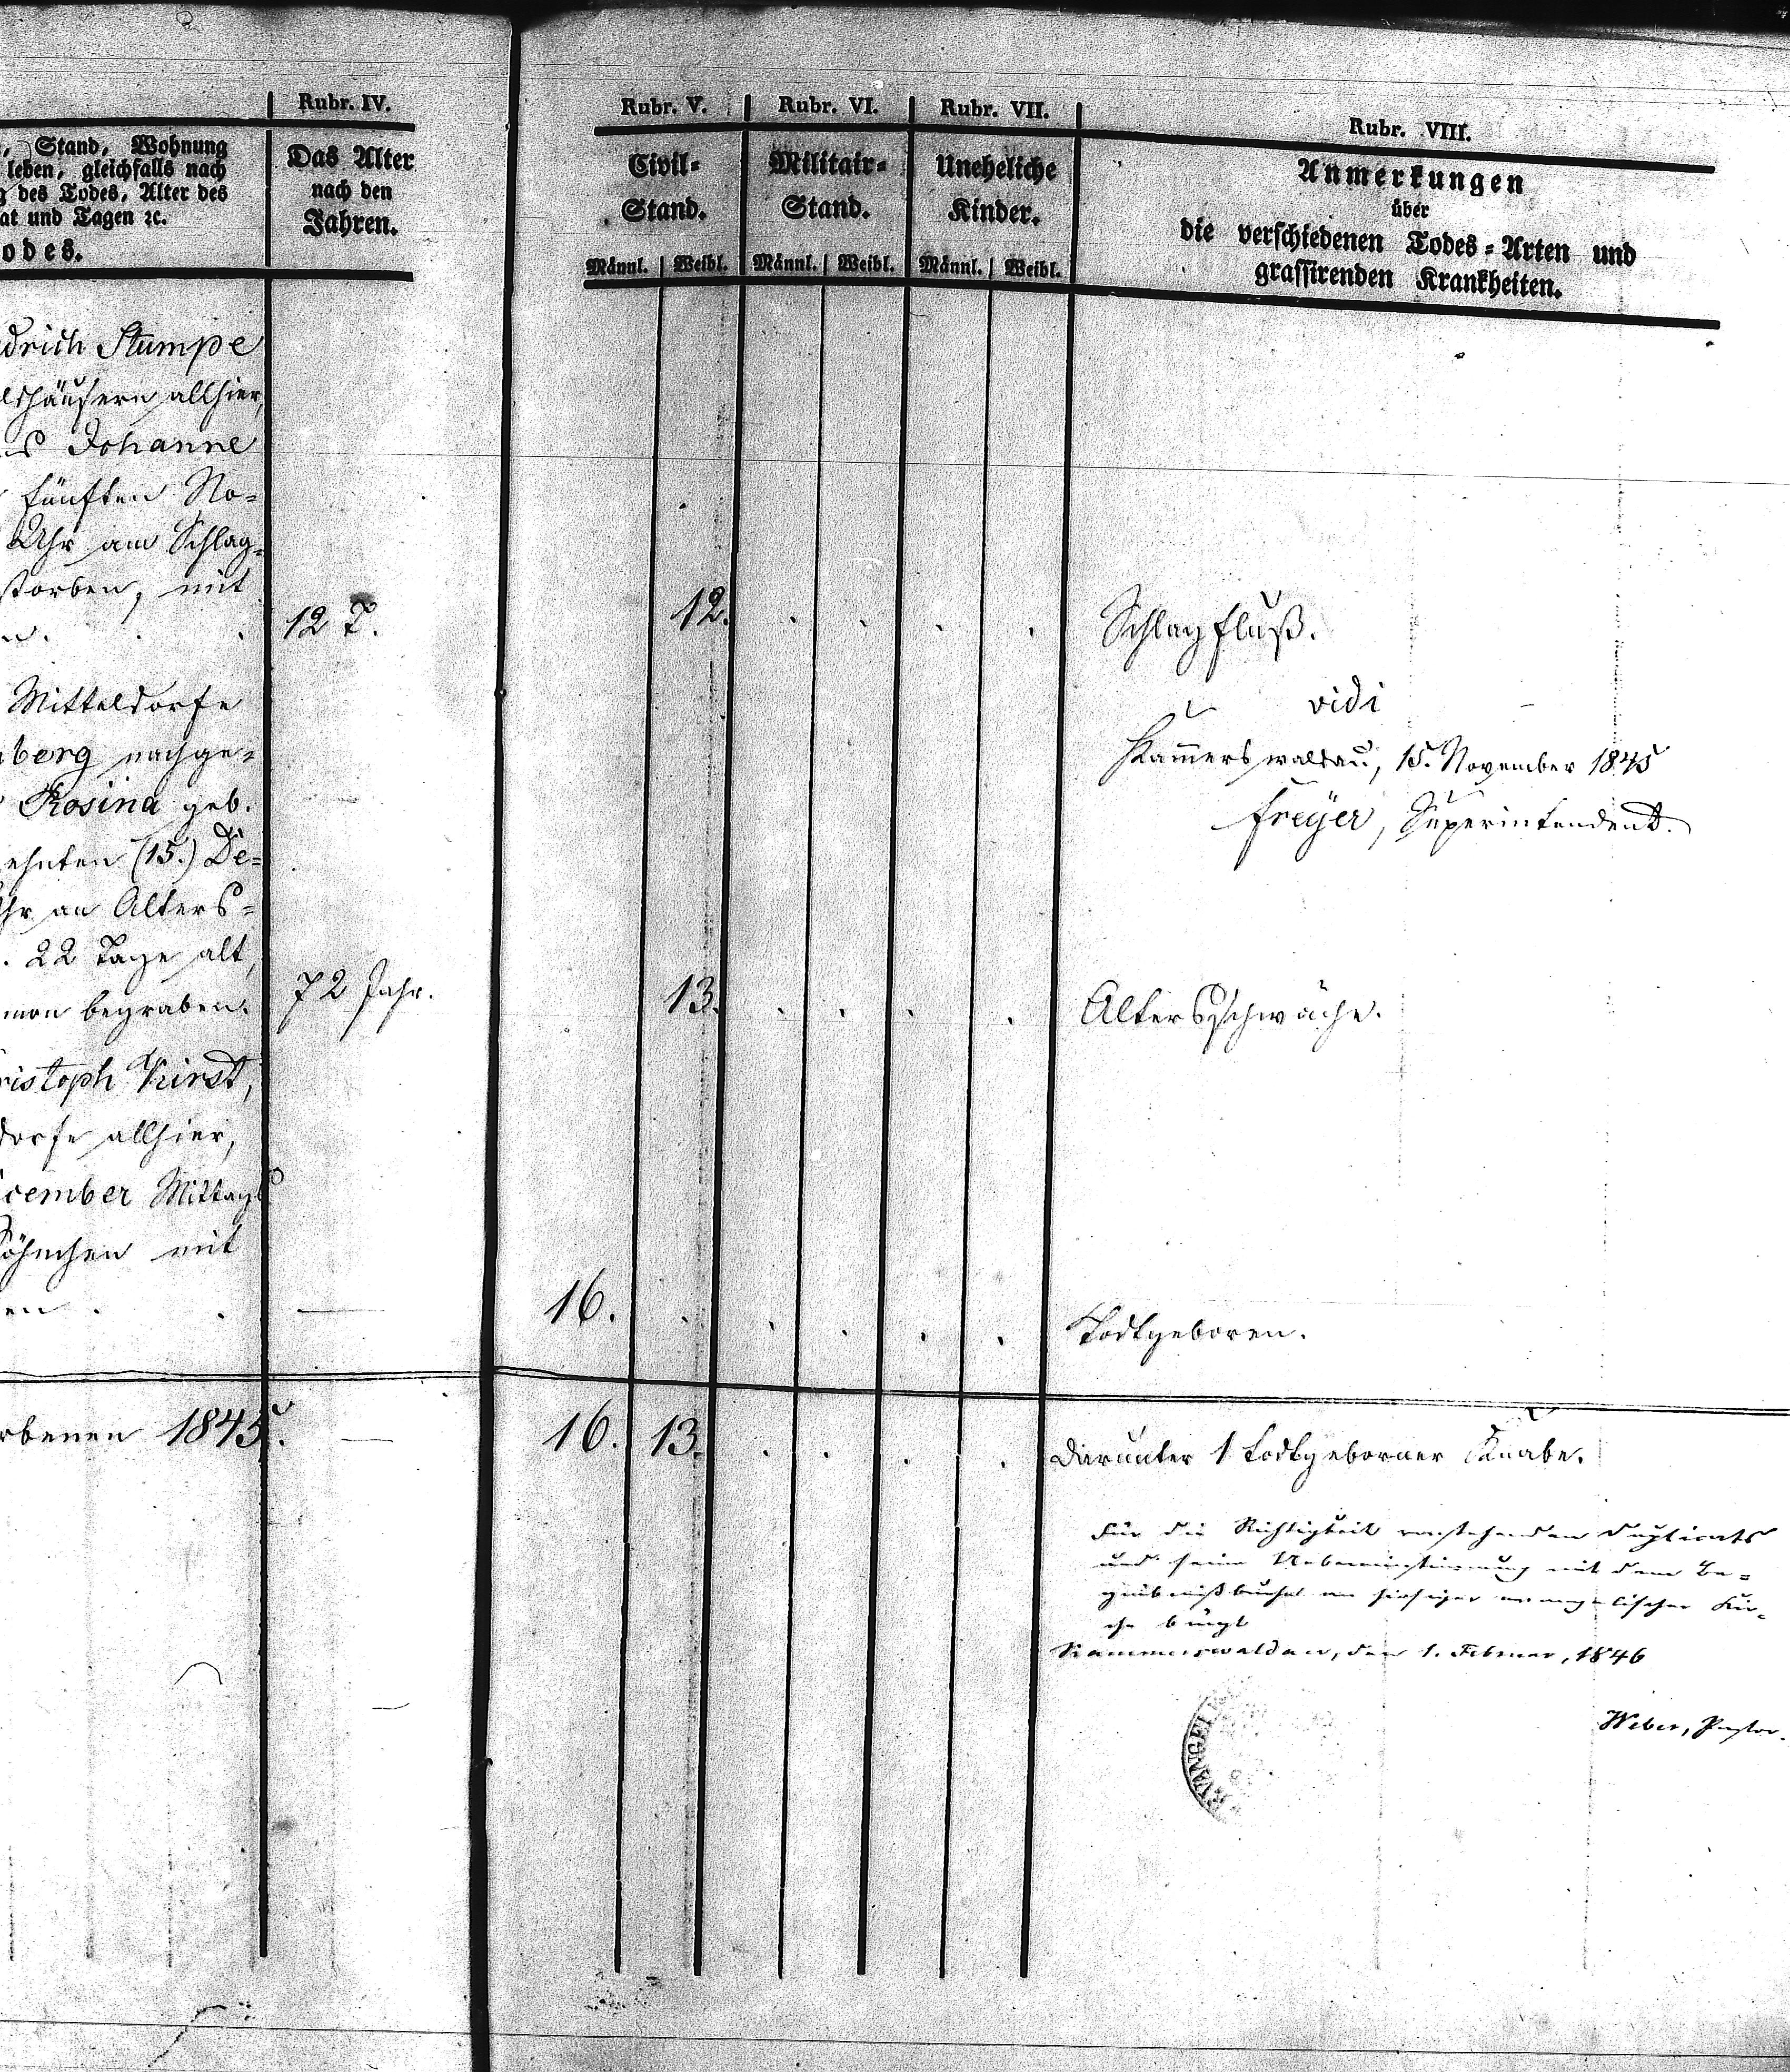 Rubr. IV.
, Stand, Wohnung
leben, gleichfalls nach
g des Todes, Alter des
at und Tagen ꝛc.
odes.
Das Alter
nach den
Jahren.
drich Stumpe
häusern allhier,
Johanne
fünften No=
Uhr am Schlag=
storben, mit
12 T.
Mitteldorfe
berg nachge=
Rosina geb.
ehnten (15.) De=
Uhr an Alters=
. 22 Tage alt,
mon begraben.
72 Jahr.
ristoph Kirst,
dorfe allhier,
cember Mittags
Söhnchen mit
en .
rbenen 1845.
Rubr. V.
Rubr. VI.
Rubr. VII.
Rubr. VIII.
Civil=
Stand.
Militair=
Stand.
Uneheliche
Kinder.
Anmerkungen
über
die verschiedenen Todes=Arten und
grassirenden Krankheiten.
Männl. Weibl. Männl. Weibl. Männl. Weibl.
12. Schlagfluß.
vidi
Kam̅erswaldau, 15. November 1845
Freyer, Superintendent.
13. Altersschwäche.
16. Todtgeboren.
16. 13. Darunter 1 todtgeborner Knabe.
Für die Richtigkeit vorstehenden Duplicats
und seine Uebereinstimmung mit dem Be=
gräbnißbuche hiesiger evangelischer Kir=
che bürgt
Kammerswaldau, den 1. Februar, 1846
Weber, Pastor.
EVANGEL